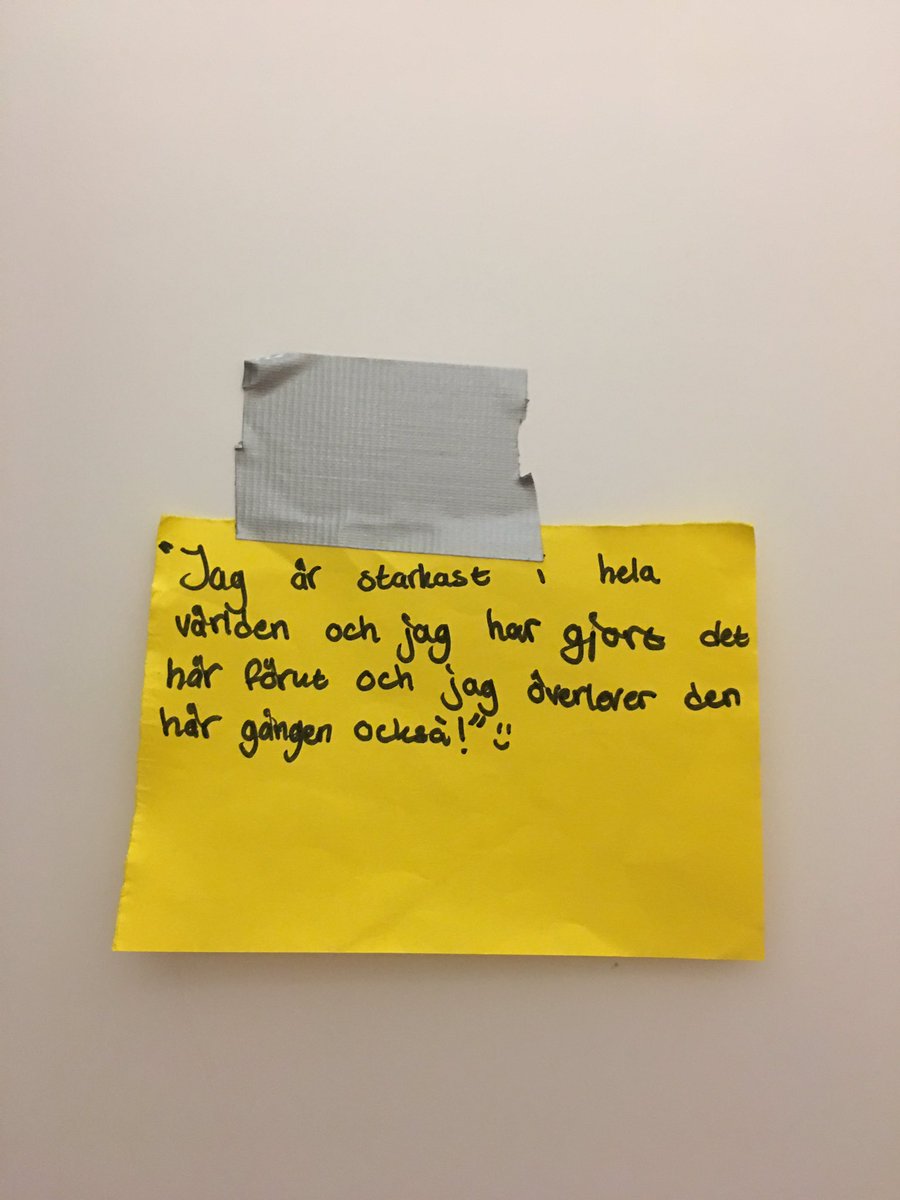 "Jag är starkast i hela
världen och jag har gjort det
här förut och jag överlever den
här gången också!" :)